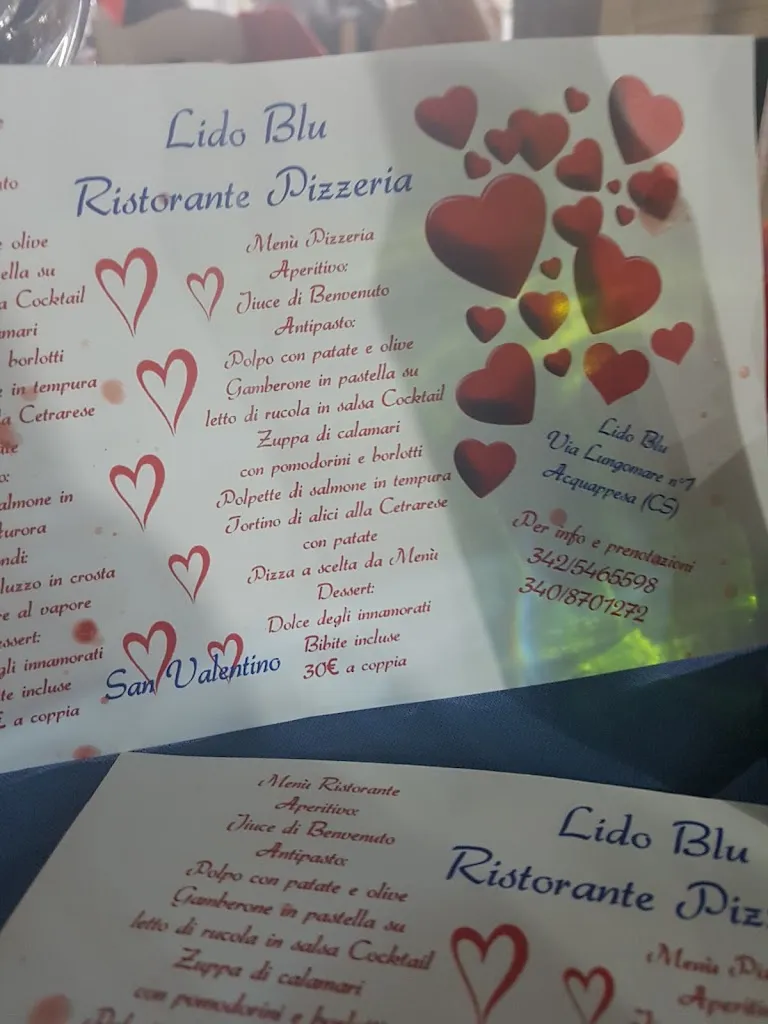 Lido Blu
Ristorante Pizzeria
olive
su
a Cocktail
borlotti
in tempura
a Cetrarese
almone in
in crosta
al vapore
gli innamorati
te incluse
€ a coppia
Menù Pizzeria
Aperitivo:
Jiuce di Benvenuto
Antipasto:
Polpo con patate e olive
Gamberone in pastella su
letto di rucola in salsa Cocktail
Zuppa di calamari
con pomodorini e borlotti
Polpette di salmone in tempura
Tortino di alici alla Cetrarese
con patate
Pizza a scelta da Menù
Dessert:
Dolce degli innamorati
Bibite incluse
30€ a coppia
San Valentino
Lido Blu
Via Lungomare n°7
Acquappesa (CS)
Per info e prenotazioni
342/5465598
340/8701272
Menù Ristorante
Aperitivo:
Jiuce di Benvenuto
Antipasto:
Polpo con patate e olive
Gamberone in pastella su
letto di rucola in salsa Cocktail
Zuppa di calamari
con pomodorini e borlotti
Lido Blu
Ristorante Piz
Menù